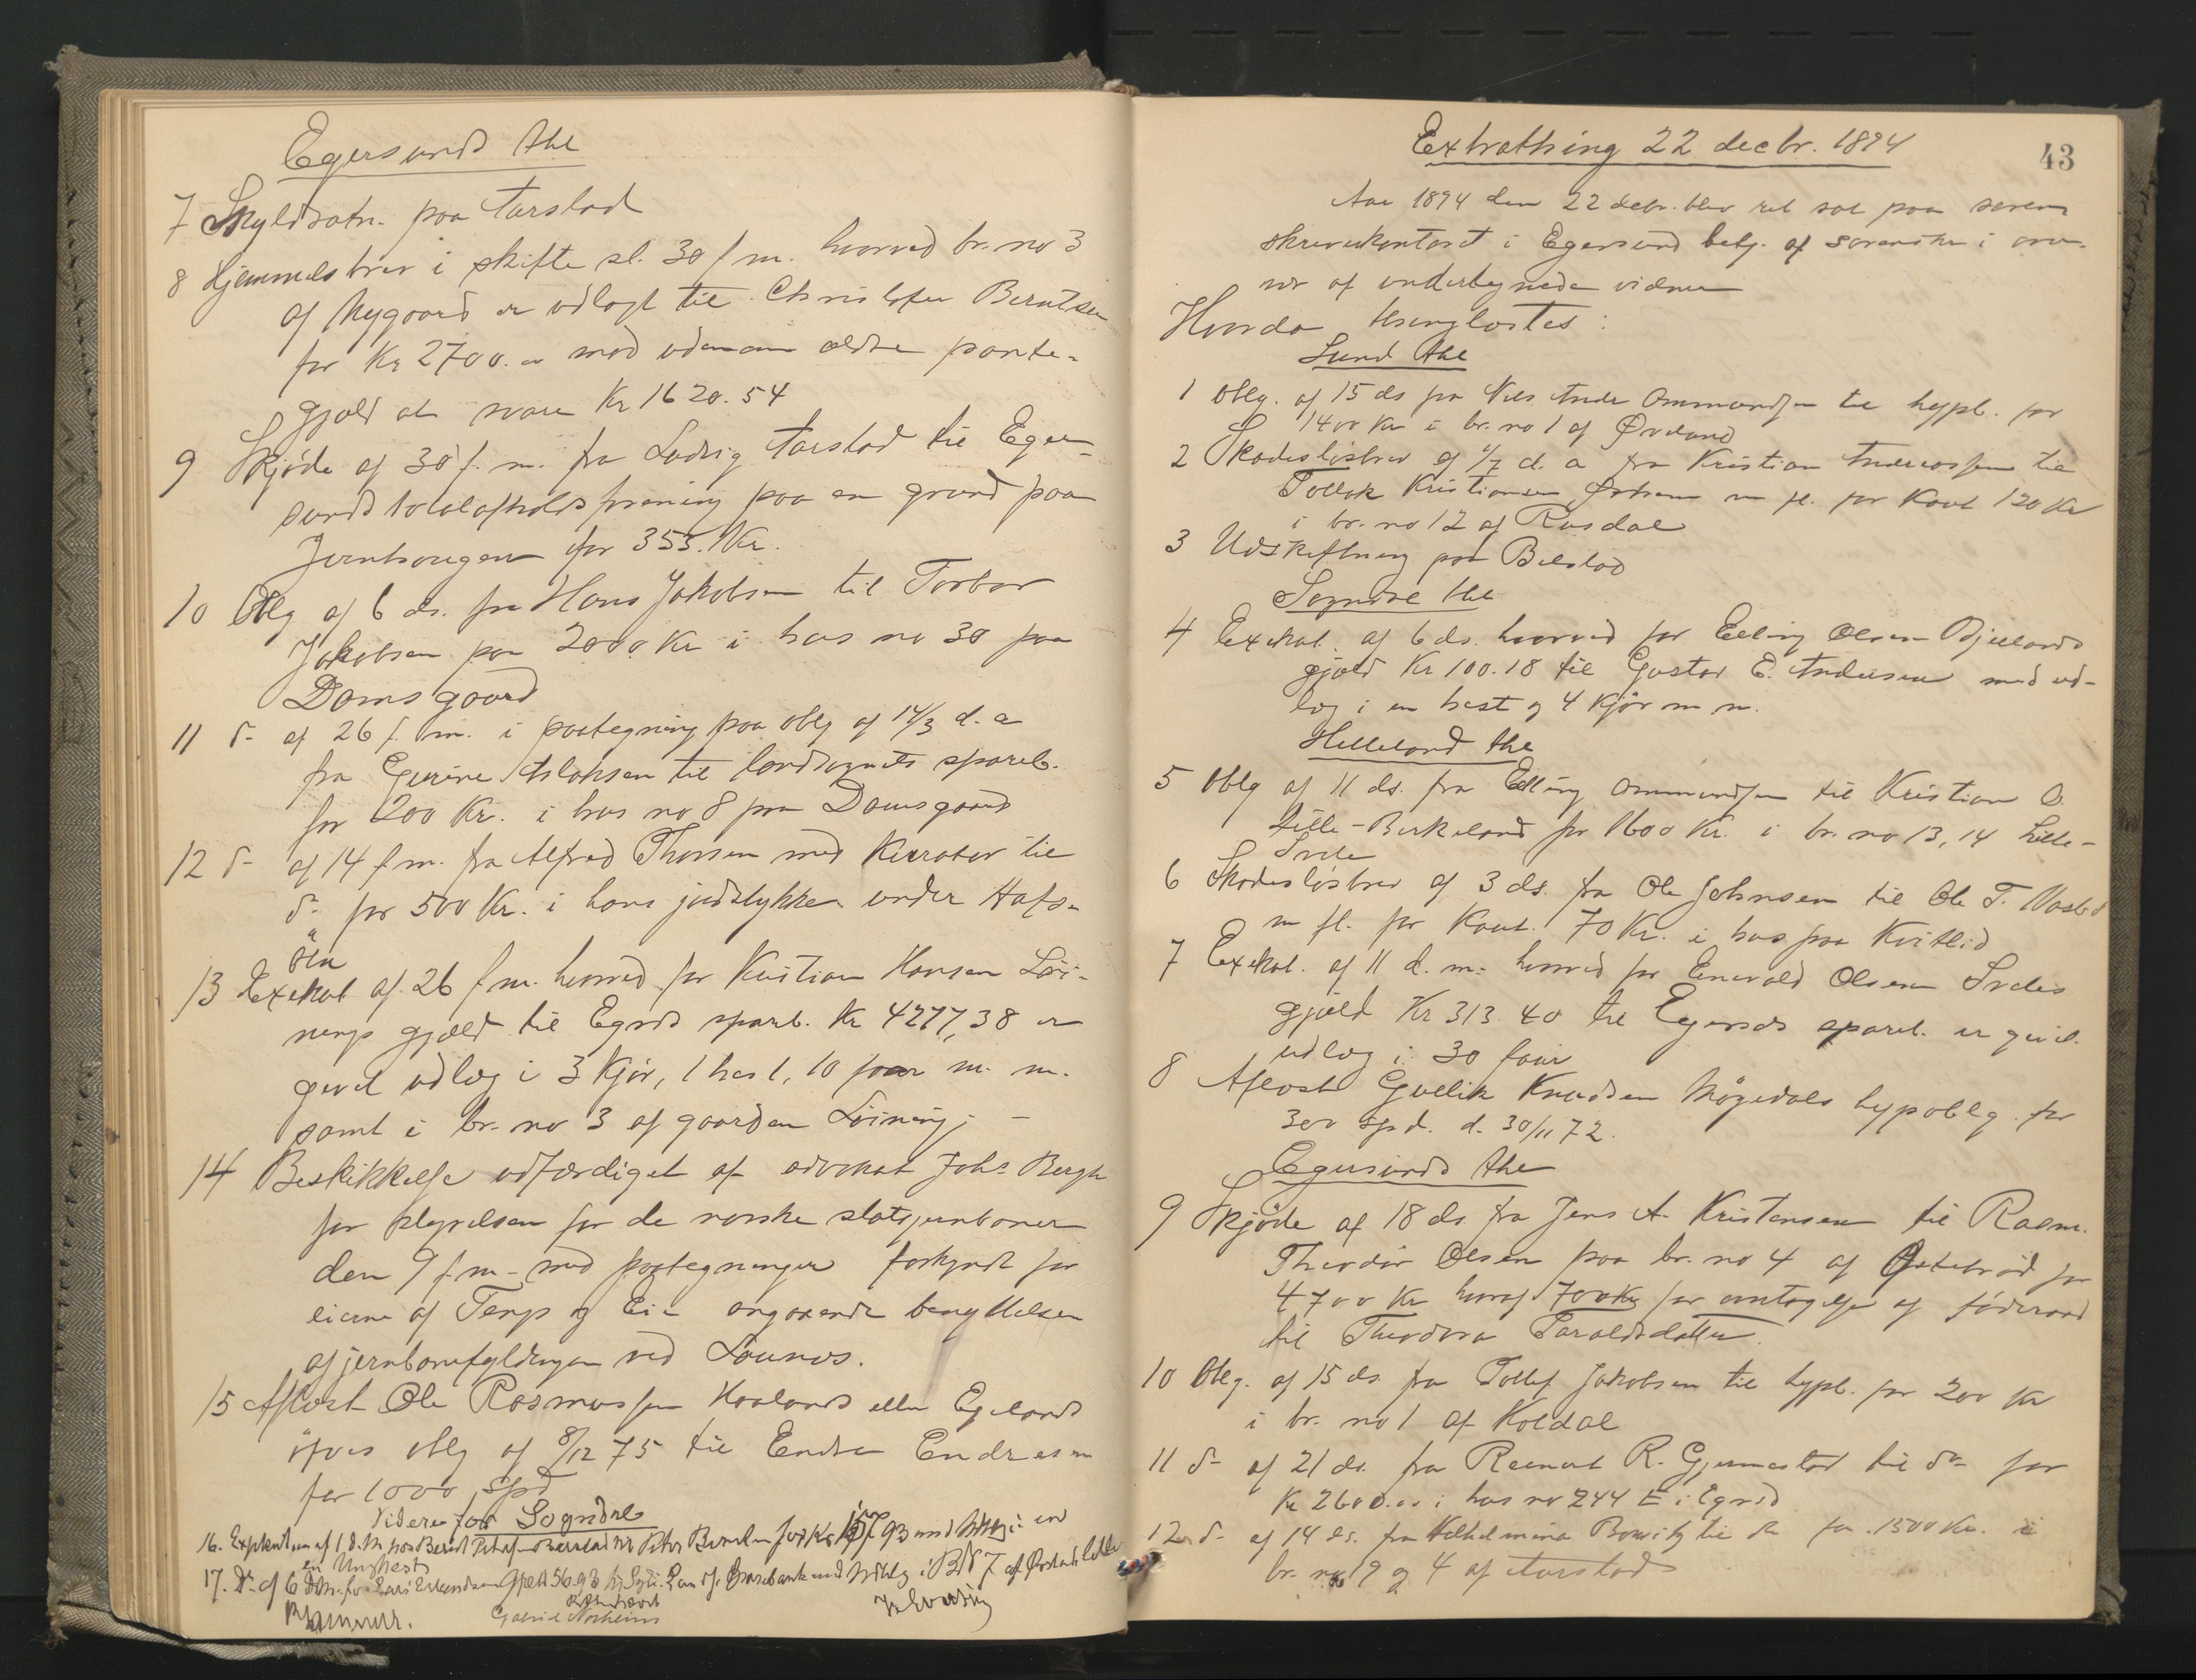 Egersunds thl
7 Skyldsætn. paa Aarstad
8 Hjemmelsbrev i skifte sl. 30 f. m. hvorved br. no 3
af Nygaard er udlagt til Christofer Berntsen
for Kr 2700.00 mod udenom ældre pante-
gjæld at svare Kr 1620.54
9 Skjöde af 30 f. m. fra Ludvig Aarstad til Eger-
sunds totalafholdsforening paa en grund paa
Jernhougen for 353. Kr.
10 Oblg af 6 ds. fra Hans Jakobsen til Torbor
Jakobsen paa 2000 Kr i hus no 30 paa
Damsgaard
11 do af 26 f. m. i paategning paa oblg af 14/3 d. a
fra Gurine Aslaksen til landsognets spareb.
for 200 Kr. i hus no 8 paa Damsgaard
12 do af 14 f m. fra Alfred Thorsen med Kurator til
do for 500 Kr. i hans jordstykke under Hafs-
öen
13 Exekut af 26 f m. hvorved for Kristian Hansen Löi-
nings gjæld til Egrsds spareb. Kr 4277,38 er
gived udlæg i 3 Kjör, 1 hest, 10 faar m. m.
samt i br. no 3 af gaarden Löining; —
14 Beskikkelse udfærdiget af advokat Johs Bergh
for styrelsen for de norske statsjernbaner
den 9 f. m. med paategninger forkyndt for
eierne af Tengs og Eie angaaende benyttelsen
af jernbanefyldingen ved Launes.
15 Aflæst Ole Rasmussen Haalands eller Egelands
öfvrs oblg af 8/12 75 til Endre Endresen
for 1000 Spd
Videre for Sogndal
16. Expkution af 1 d. M. hos Berent Peter
en Unghest
17. Do af 6 d. M. for Lars Erlandsen Gjæld 56.93
Gabriel Norheim
43
Extrathing 22 decbr. 1894
Aar 1894 den 22 decbr. blev ret sat paa soren-
skriverkontoret i Egersund betj. af sorenskr. i over-
vær af undertegnede vidner
Hvorda thinglæstes:
Lund thl
1 Oblg. af 15 ds fra Nils Andr Ommundsen til hypb. for
1400 Kr i br. no 1 af Øveland
2 Skadeslösbrev af 4/7 d. a fra Kristian Andreassen til
Tollak Kristiansen m fl. for Kaut 120 Kr
i br. no 12 af Rusdal
3 Udskiftning paa Bilstad
Sogndal thl
4 Exekut. af 6 ds. hvorved for Elling Olsen Bjellands
gjæld Kr 100.18 til Gustav E. Andersen med ud-
læg i en hest og 4 Kjör m m.
Helleland thl
5 Oblg af 11 ds. fra Elling Ommundsen til Kristian O.
Lille-Birkeland for 1600 Kr. i br. no 13, 14 Lille-
Svela
6 Skadeslösbrev af 3 ds. fra Ole Johnsen til Ole T.
m fl. for Kaut. 70 Kr. i hus paa Kvitlid
7 Exekut. af 11 d. m. hvorved for Enevald Olsen Svelas
gjæld Kr 313.40 til Egersds spareb. er givet
udlæg i 30 faar
8 Aflæst Gullik Knudsen Mögedals hypoblg. for
300 Spd. d. 30/11 72.
Egersunds thl
9 Skjöde af 18 ds fra Jens A. Kristensen til Rasm.
Theodor Olsen paa br. no 4 af Østebröd for
4700 Kr hvoraf 700 Kr for antagelse af föderaad
til Theodora Taraldsdatter.
10 Oblg. af 15 ds. fra Tollef Jakobsen til hypb. for 200 Kr
i br. no 1 af Koldal
11 do af 21 ds. fra Reinert R. Gjermestad til do for
Kr 2600.00 i hus no 244 E i Egrsd
12 do af 14 ds. fra Vilhelmina Bowitz til do for 1500 Kr. i
br. no 19 og 4 af Aarstad